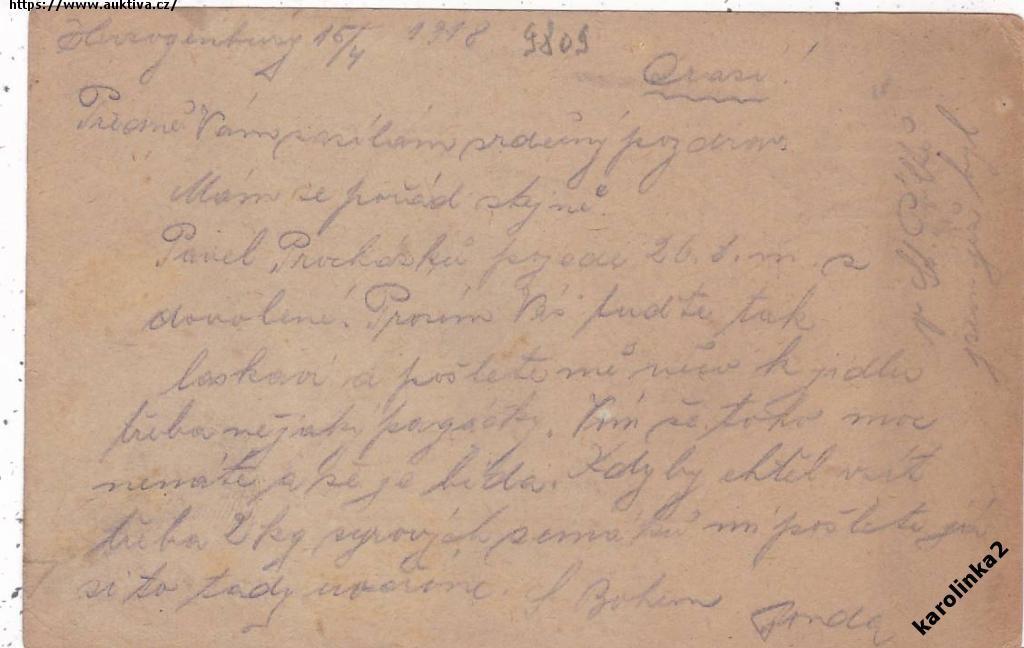 https://www.auktiva.cz/
Herzogenburg 15/4 1918 9809
Drazí!
Předně Vám zasílám srdečný pozdrav.
Mám se pořád stejně.
Pavel Procházků pojede 26. t. m. z
dovolené. Prosím Vás buďte tak
laskaví a pošlete mě něco k jídlu
třeba nějaký pagáčky. Vím že toho moc
nemáte a že je bída. Kdyby chtěl vzít
třeba 2 kg syrových zemáků mi pošlete já
si to tady uvaříme. S Bohem
V St.
jsem již byl
karolinka2